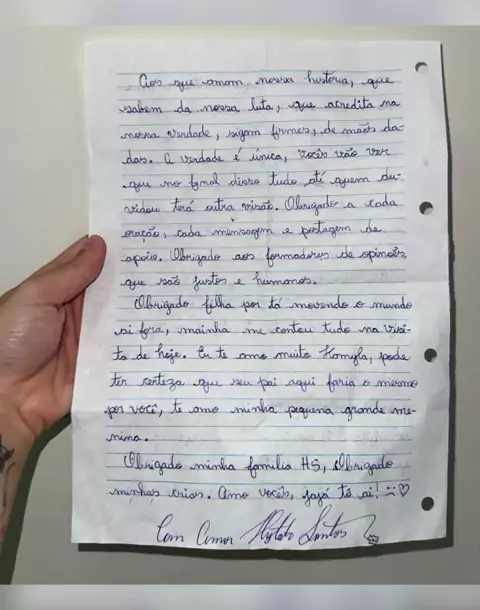 Aos que amam nossa história, que
sabem da nossa luta, que acredita na
nossa verdade, sigam firmes, de mãos da-
das. A verdade é única, vocês vão ver
que no final disso tudo até quem du-
vidou terá outra visão. Obrigado a cada
oração, cada mensagem e postagem de
apoio. Obrigado aos formadores de opiniões
que são justos e humanos.
Obrigado filha por tá movendo o mundo
ai fora, mainha me contou tudo na visi-
ta de hoje. Eu te amo muito Kamyla, pode
ter certeza que seu pai aqui faria o mesmo
por você, te amo minha pequena grande me-
nina.
Obrigado minha família HS, Obrigado
minhas crias. Amo vocês, jajá tô ai! :) ♡
Com Amor Hytalo Santos